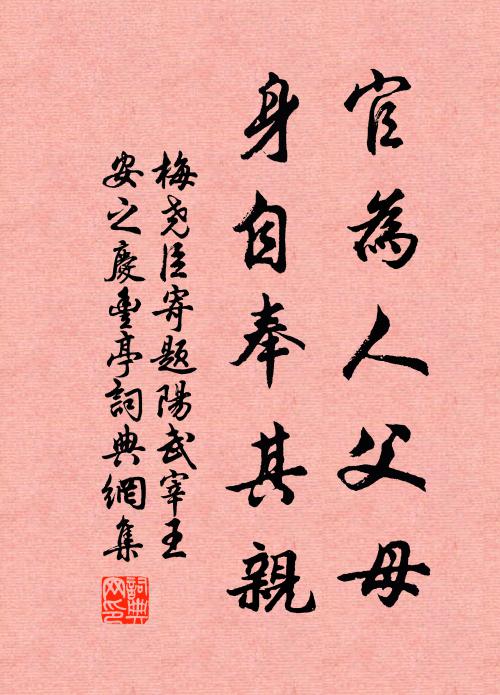 官為人父母
身自奉其親
梅堯臣寄題陽武宰王
安之慶豐亭詞典網集
詞典
网印